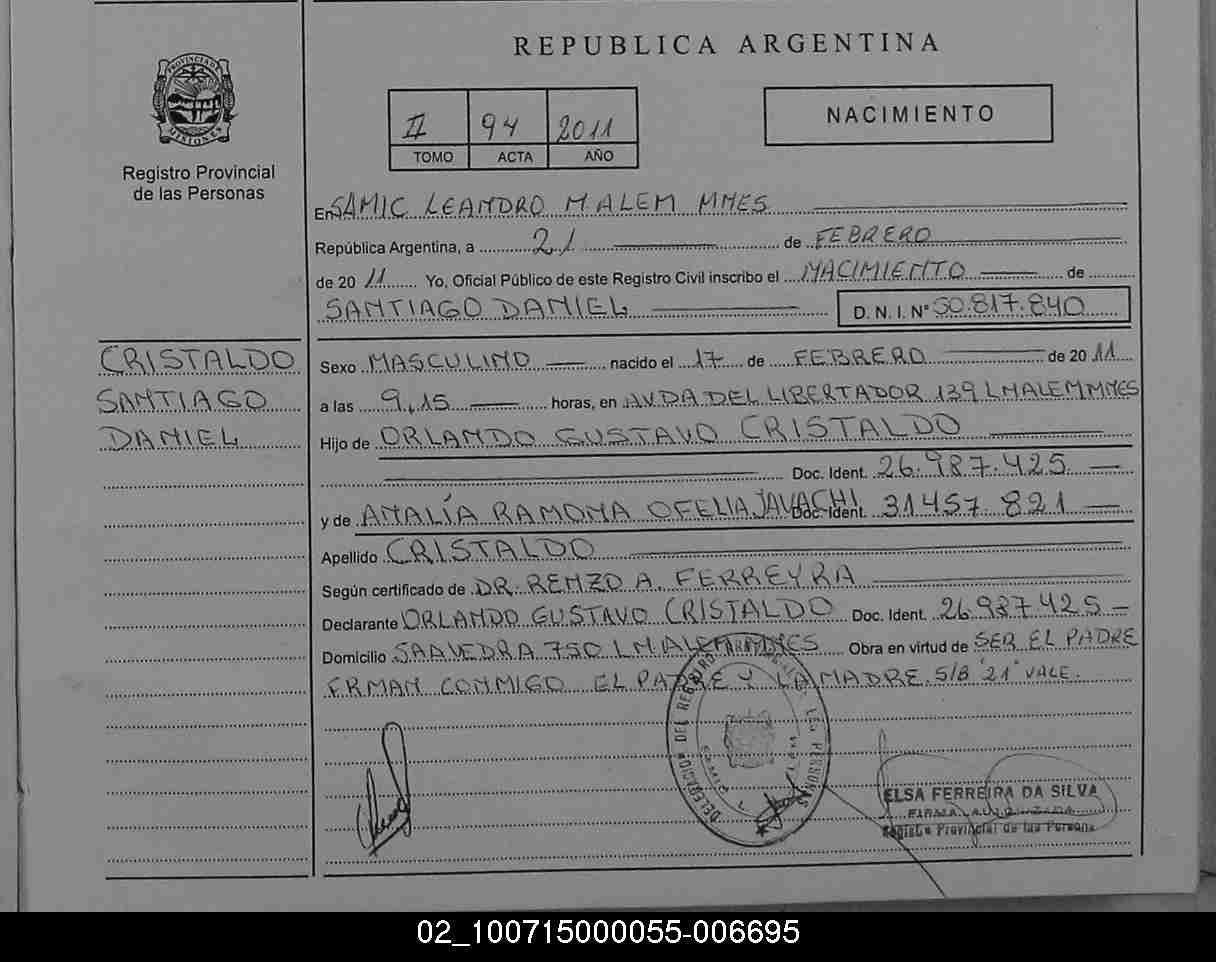 REPUBLICA ARGENTINA
PROVINCIA D MISIONES
Registro Provincial
de las Personas
II 94 2011
TOMO ACTA AÑO
NACIMIENTO
En SAMIC LEANDRO N ALEM MNES
República Argentina, a 21 de FEBRERO
de 2011 Yo, Oficial Público de este Registro Civil inscribo el NACIMIENTO de
SANTIAGO DANIEL D. N. I. N° 50.817.840
CRISTALDO
SANTIAGO
DANIEL
Sexo MASCULINO nacido el 17 de FEBRERO de 2011
a las 9,15 horas, en AVDA DEL LIBERTADOR 139 L N ALEM MNES
Hijo de ORLANDO GUSTAVO CRISTALDO
Doc. Ident. 26.987.425
y de AMALÍA RAMONA OFELIA JAVACHI Doc. Ident. 31457.821
Apellido CRISTALDO
Según certificado de DR. RENZO A. FERREYRA
Declarante ORLANDO GUSTAVO CRISTALDO Doc. Ident. 26.987.425
Domicilio SAAVEDRA 750 L N ALEM MNES Obra en virtud de SER EL PADRE
FRMAN CONMIGO EL PADRE Y LA MADRE. S/B "21" VALE.
DELEGACION DEL REGISTRO LAS PERSONAS
ELSA FERREIRA DA SILVA
FIRMA AUTORIZADA
Registro Provincial de las Personas
02_100715000055-006695